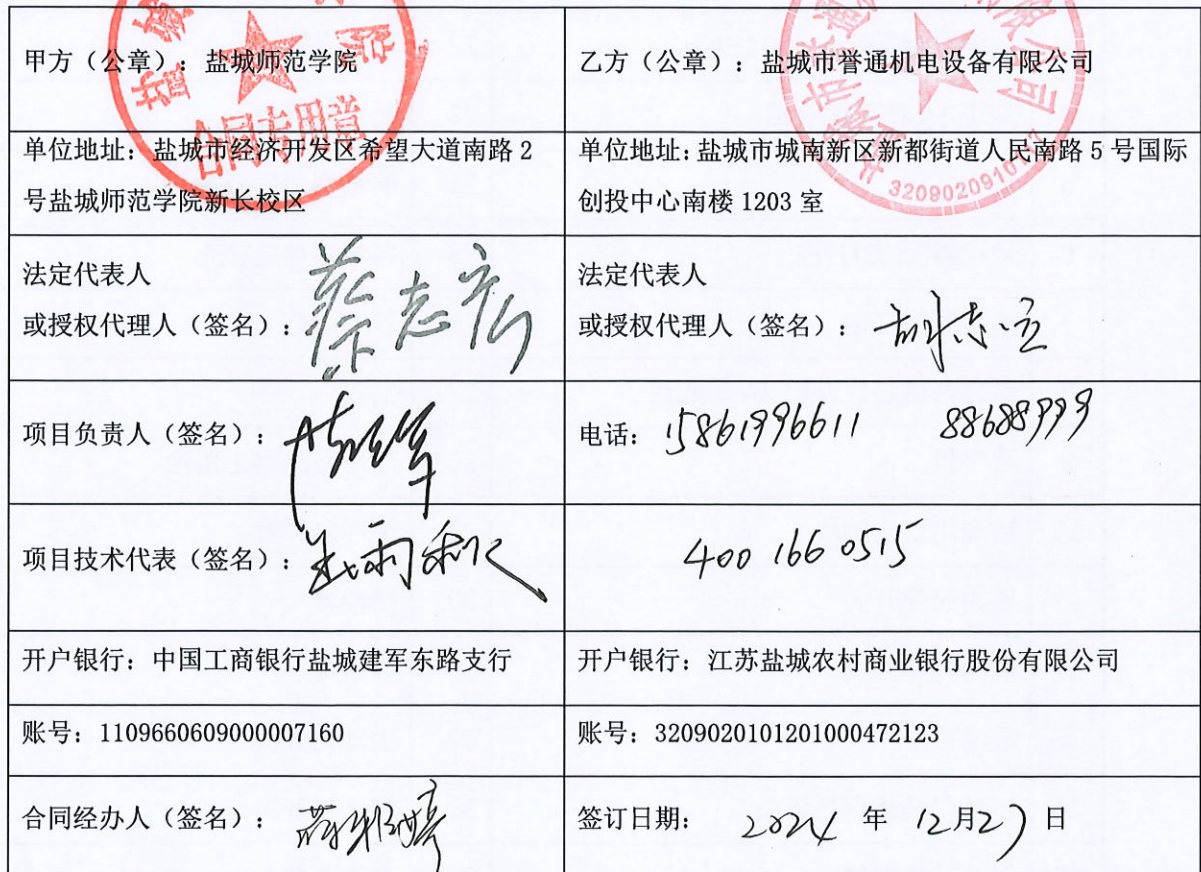 甲方（公章）：盐城师范学院
乙方（公章）：盐城市誉通机电设备有限公司
合同专用章
单位地址：盐城市经济开发区希望大道南路 2
号盐城师范学院新长校区
单位地址：盐城市城南新区新都街道人民南路 5 号国际
创投中心南楼 1203 室
法定代表人
或授权代理人（签名）：蔡志宏
法定代表人
或授权代理人（签名）：胡志立
项目负责人（签名）：
电话：15861996611 88688999
项目技术代表（签名）：
400 166 0515
开户银行：中国工商银行盐城建军东路支行
开户银行：江苏盐城农村商业银行股份有限公司
账号：1109660609000007160
账号：3209020101201000472123
合同经办人（签名）：
签订日期： 2024 年 12月27日